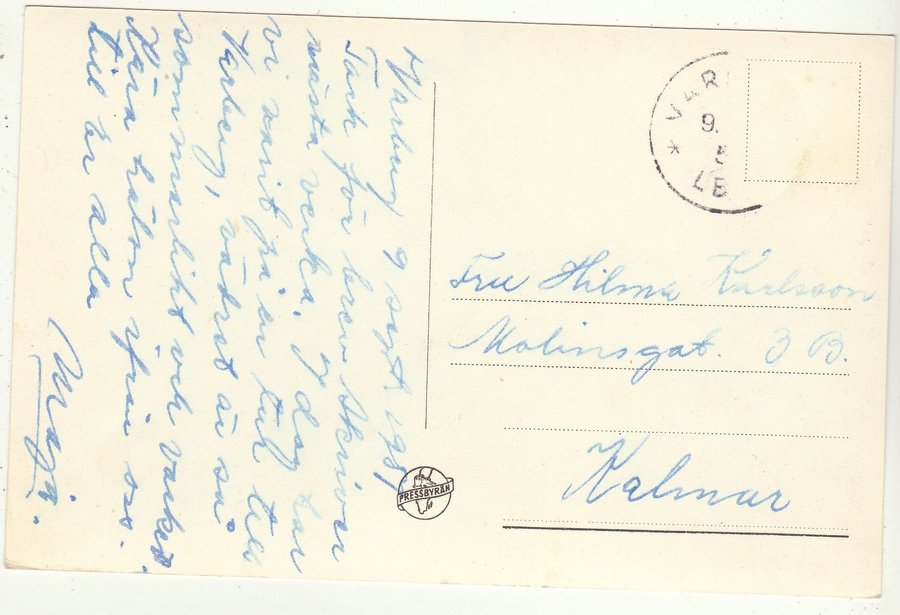 Varberg 9 sept. 195
Tack för brev skriver
nästa vecka. I dag har
vi varit på en tur till
Varberg, vädret är så
som märkligt och vackert.
Kära hälsn ifrån oss.
till er alla
Maja.
PRESSBYRÅN
VAR
9.
5
LB
Fru Hilma Karlsson
Molinsgat. 3 B.
Kalmar